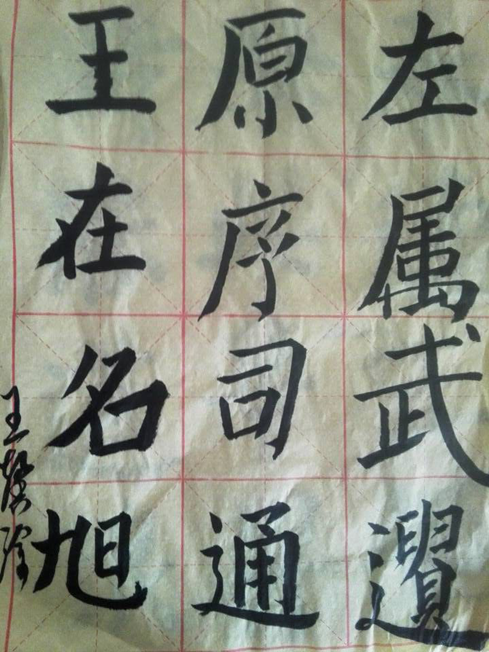 左属武
原序司通
王在名旭
王